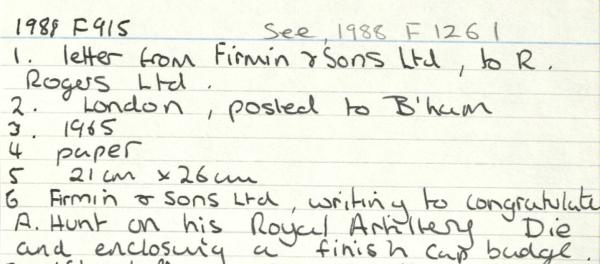 1989 F915 See, 1988 F 1261
1. letter from Firmin & Sons Ltd, to R.
Rogers Ltd.
2. London, posted to B'ham
3. 1965
4 paper
5 21cm x 26cm
6 Firmin & Sons Ltd, writing to congratulate
A. Hunt on his Royal Artillery Die
and enclosing a finish cap badge.